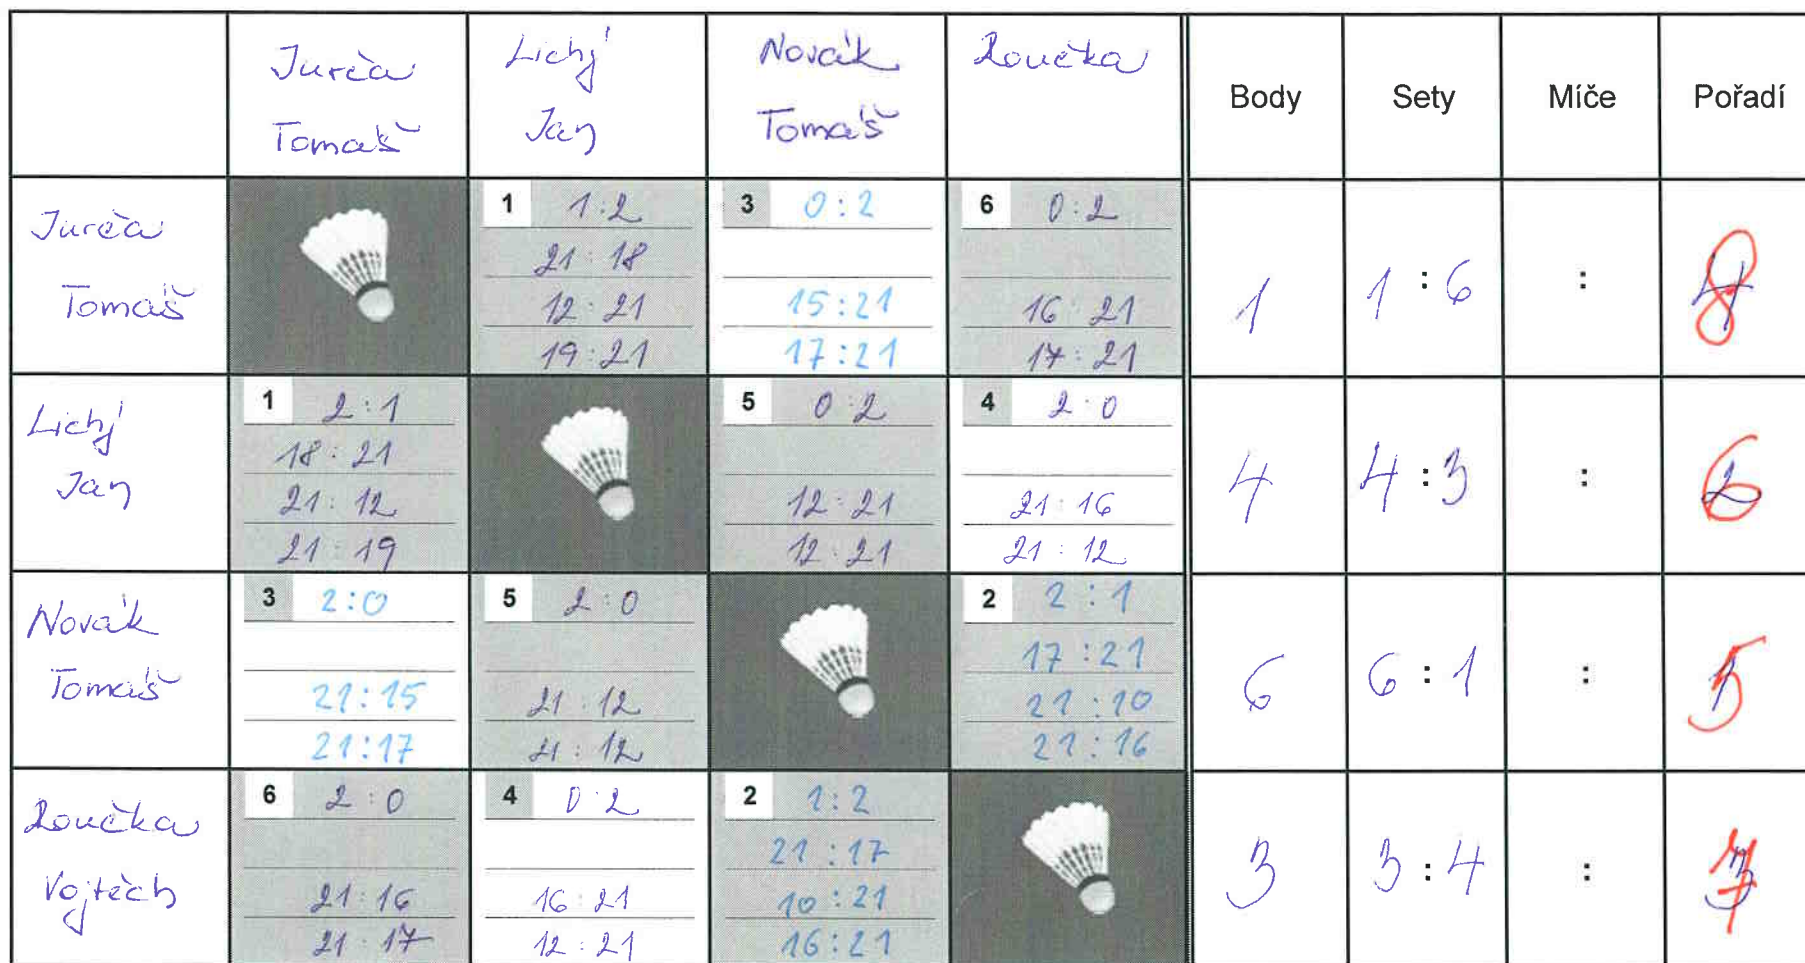 Jurča Tomáš Lichý Jan Novák Tomáš Roučka Body Sety Míče Pořadí
Jurča Tomáš
1 1:2
21:18
12:21
19:21
3 0:2
15:21
17:21
6 0:2
16:21
17:21
1 1:6 : 8
Lichý Jan
1 2:1
18:21
21:12
21:19
5 0:2
12:21
12:21
4 2:0
21:16
21:12
4 4:3 : 6
Novák Tomáš
3 2:0
21:15
21:17
5 2:0
21:12
21:12
2 2:1
17:21
21:10
21:16
6 6:1 : 5
Roučka Vojtěch
6 2:0
21:16
21:17
4 0:2
16:21
12:21
2 1:2
21:17
10:21
16:21
3 3:4 : 7